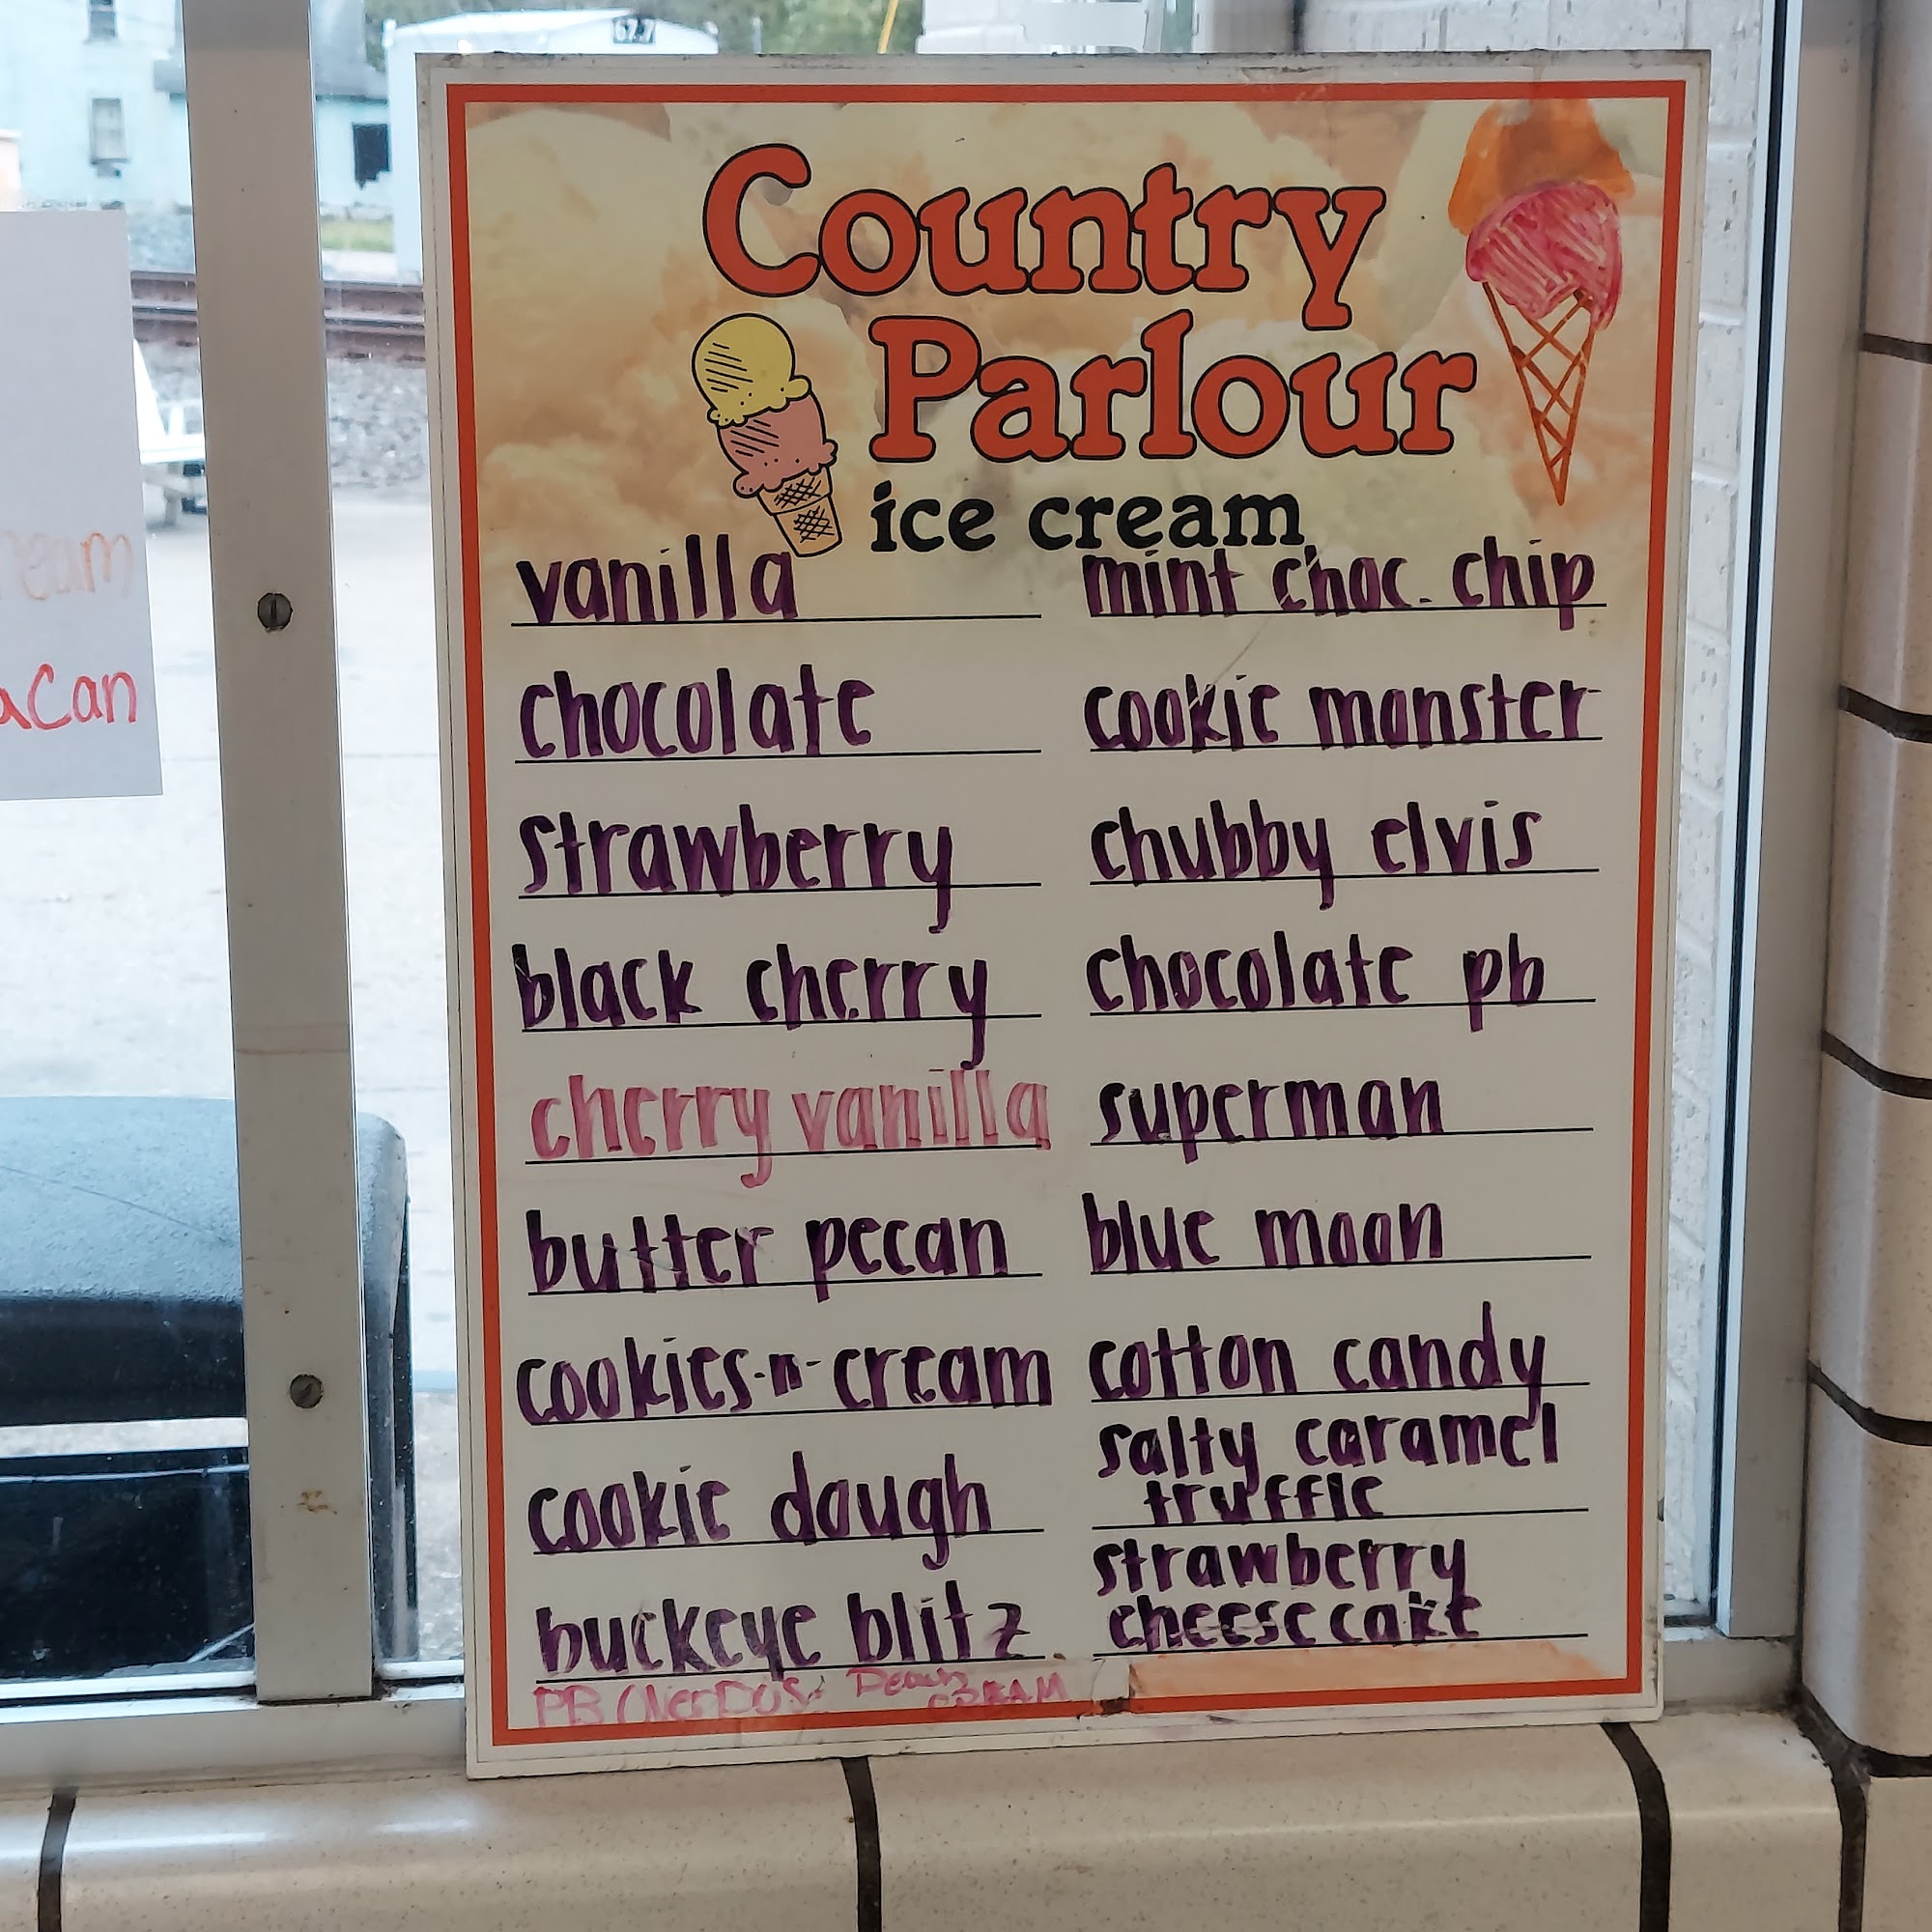 67.7
Country
Parlour
ice cream
vanilla
chocolate
strawberry
black cherry
cherry vanilla
butter pecan
cookies-n-cream
cookie dough
buckeye blitz
PB
Peach
CREAM
mint choc. chip
cookie monster
chubby elvis
chocolate pb
superman
blue moon
cotton candy
salty caramel
truffle
strawberry
cheesecake